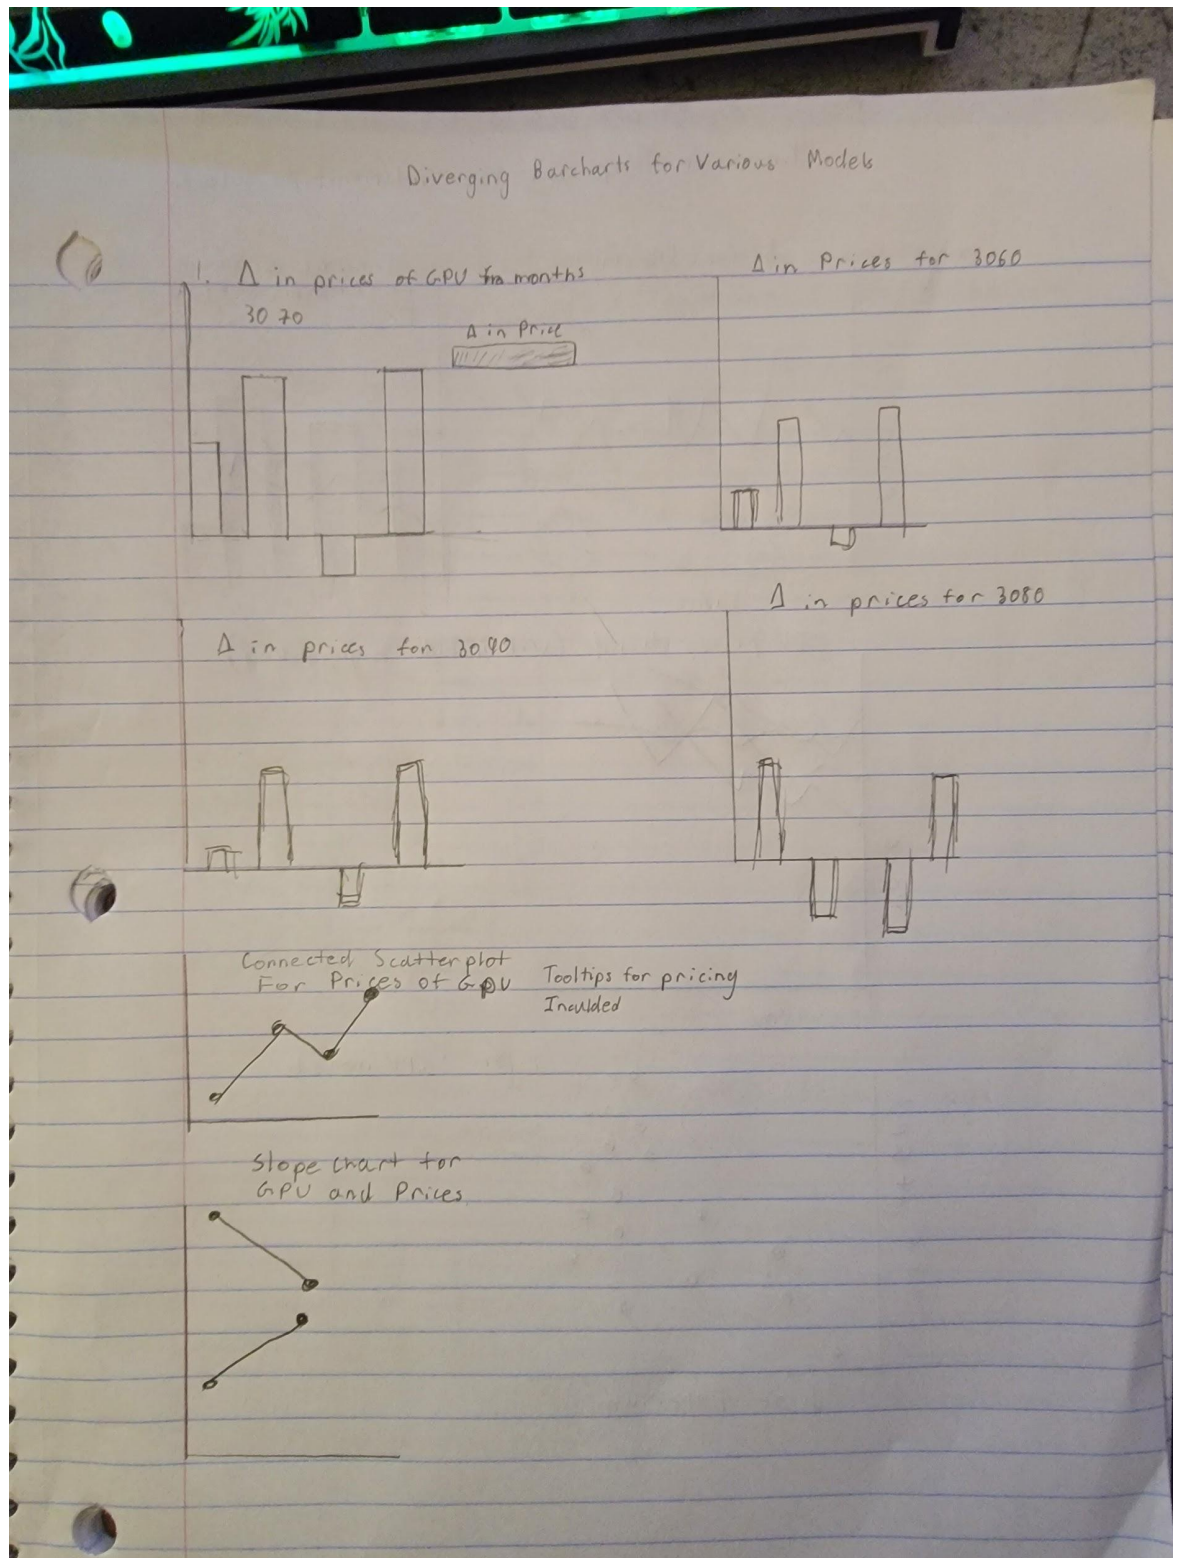 Diverging Barcharts for Various Models
1. Δ in prices of GPU months
3070
Δ in Price
Δ in Prices for 3060
Δ in prices for 3090
Δ in prices for 3080
Connected Scatterplot
For Prices of GPU
Tooltips for pricing
Inculded
Slope chart for
GPU and Prices